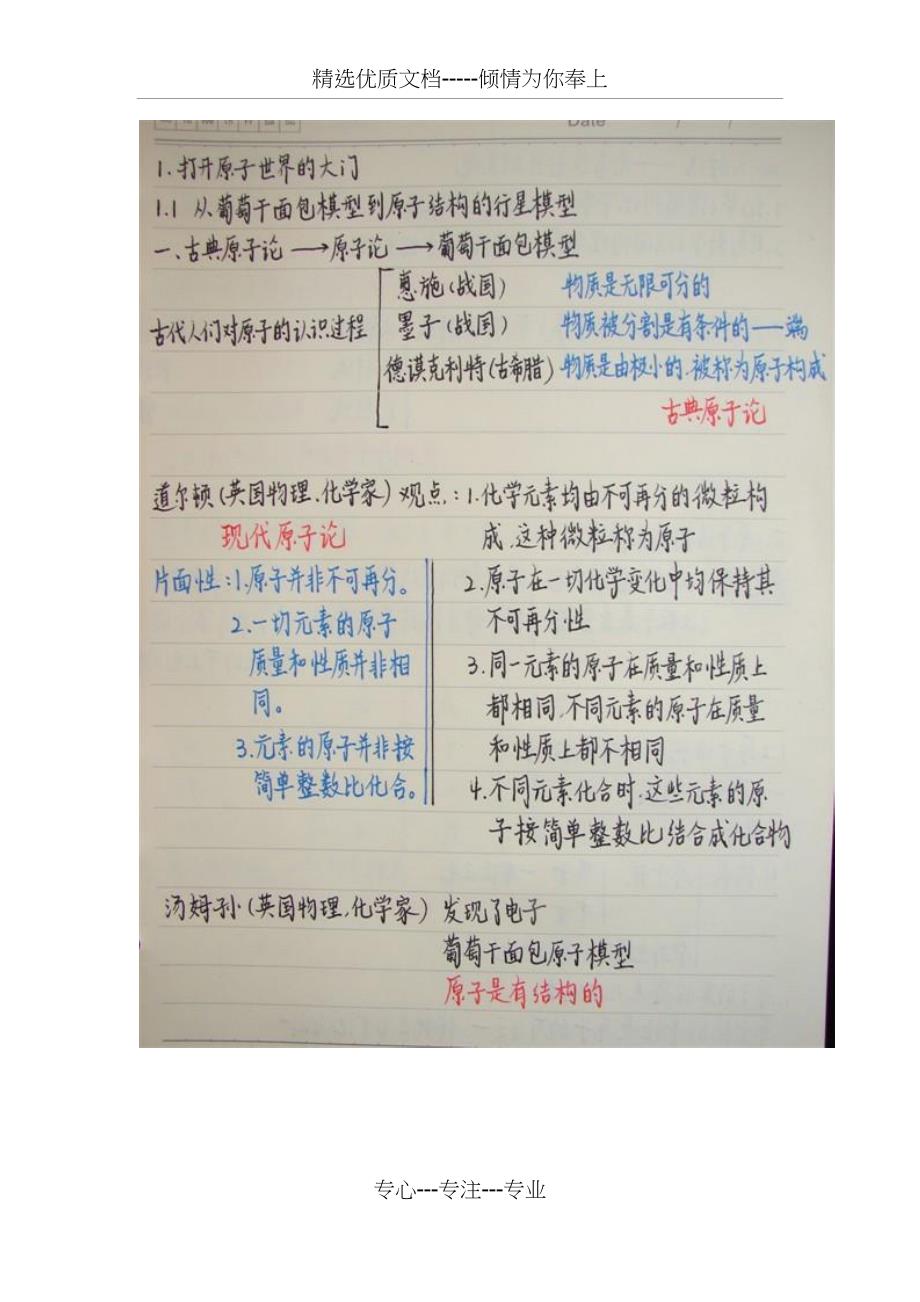 精选优质文档-----倾情为你奉上
Date / /
1. 打开原子世界的大门
1.1 从葡萄干面包模型到原子结构的行星模型
一、古典原子论 → 原子论 → 葡萄干面包模型
惠施(战国) 物质是无限可分的
古代人们对原子的认识过程 墨子(战国) 物质被分割是有条件的——端
德谟克利特(古希腊) 物质是由极小的、被称为原子构成
古典原子论
道尔顿(英国物理、化学家)观点:1.化学元素均由不可再分的微粒构
现代原子论 成,这种微粒称为原子
片面性:1.原子并非不可再分。 2.原子在一切化学变化中均保持其
2.一切元素的原子 不可再分性
质量和性质并非相 3.同一元素的原子在质量和性质上
同。 都相同,不同元素的原子在质量
3.元素的原子并非按 和性质上都不相同
简单整数比化合。 4.不同元素化合时,这些元素的原
子按简单整数比结合成化合物
汤姆孙(英国物理,化学家) 发现了电子
葡萄干面包原子模型
原子是有结构的
专心---专注---专业